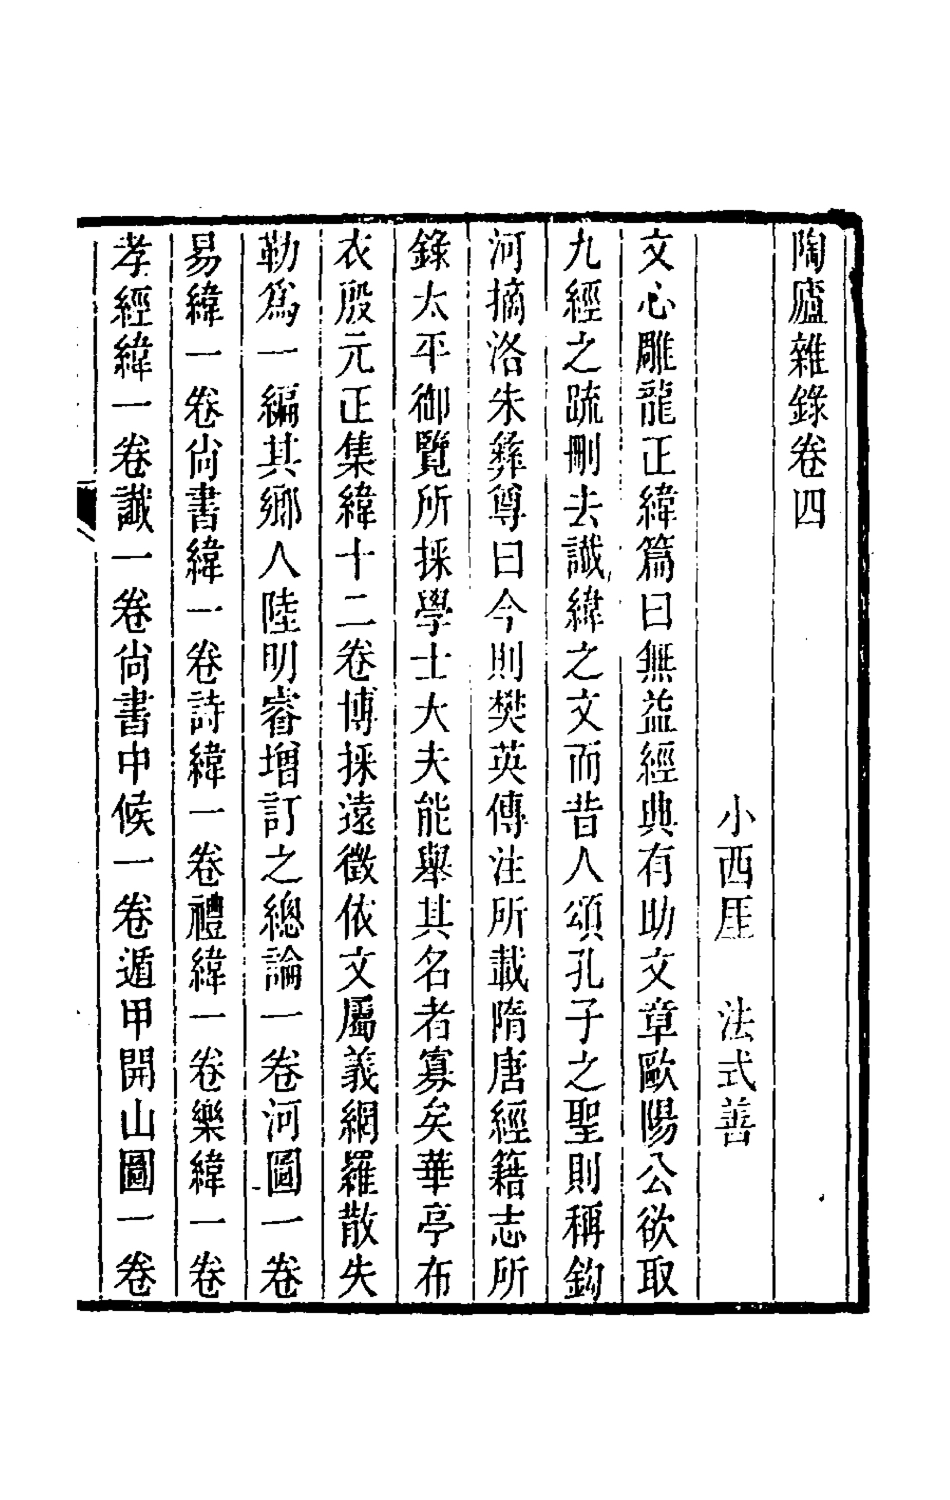 陶廬雜錄卷四
小西厓　法式善
文心雕龍正緯篇曰無益經典有助文章歐陽公欲取
九經之疏刪去讖緯之文而昔人頌孔子之聖則稱鉤
河摘洛朱彝尊曰今則樊英傳注所載隋唐經籍志所
錄太平御覽所採學士大夫能舉其名者寡矣華亭布
衣殷元正集緯十二卷博採遠徵依文屬義網羅散失
勒爲一編其鄉人陸明睿增訂之總論一卷河圖一卷
易緯一卷尙書緯一卷詩緯一卷禮緯一卷樂緯一卷
孝經緯一卷讖一卷尙書中候一卷遁甲開山圖一卷